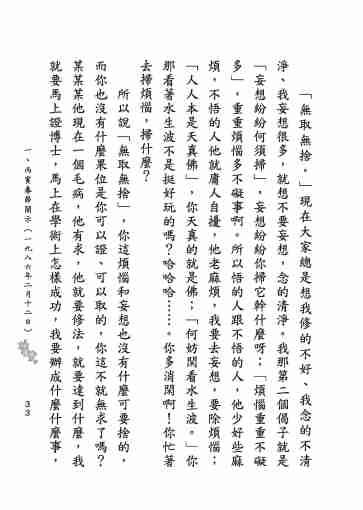 「無取無捨。」現在大家總是想我修的不好、我念的不清
淨、我妄想很多，就想不要妄想，念的清淨。我那第二個偈子就是
「妄想紛紛何須掃」，妄想紛紛你掃它幹什麼呀；「煩惱重重不礙
多」，重重煩惱多不礙事啊。所以悟的人跟不悟的人，他少好些麻
煩，不悟的人他就庸人自擾，他老麻煩，我要去妄想，要除煩惱；
「人人本是天真佛」，你天真的就是佛；「何妨閑看水生波。」你
那看著水生波不是挺好玩的嗎？哈哈哈……。你多消閑啊！你忙著
去掃煩惱，掃什麼？
所以說「無取無捨」，你這煩惱和妄想也沒有什麼可要捨的，
而你也沒有什麼果位是你可以證。可以取的。你這不就無求了嗎？
某某某他現在一個毛病，他有求，他就要修法，就要達到什麼，我
就要馬上證博士，馬上在學術上怎樣成功，我要辦成什麼什麼事，
一、丙寅春節開示（一九八六年二月十二日）
33